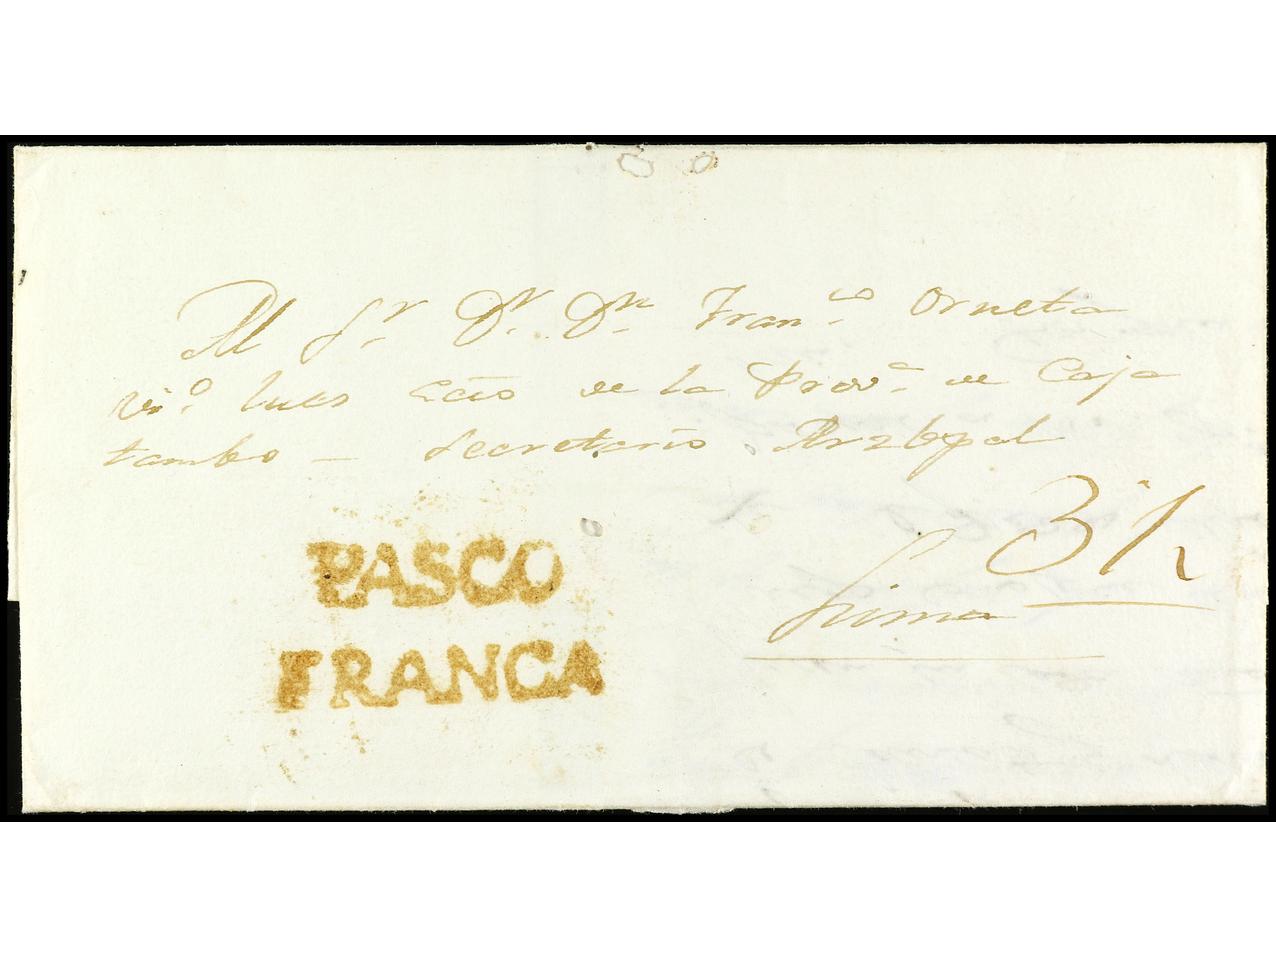 Al Sr. Dr. Dn. Fran.co Orneta
de la Prov.a de Caja
tambo — Secretario Arzbpal
3 ½
Lima
PASCO
FRANCA